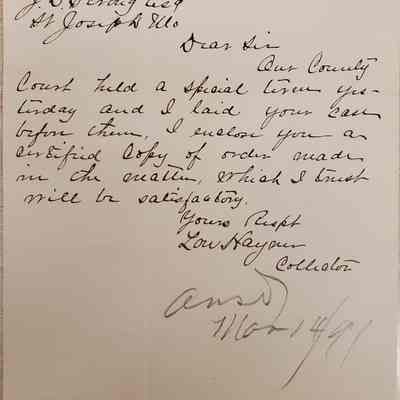 J. D. Strong Esq
St Joseph Mo
Dear Sir
Our County
Court held a special term yes-
terday and I laid your case
before them, I enclose you a
certified Copy of order made
in the matter, which I trust
will be satisfactory.
Yours Respt
Lou Haynes
Collector
ansd
Mar 14/91